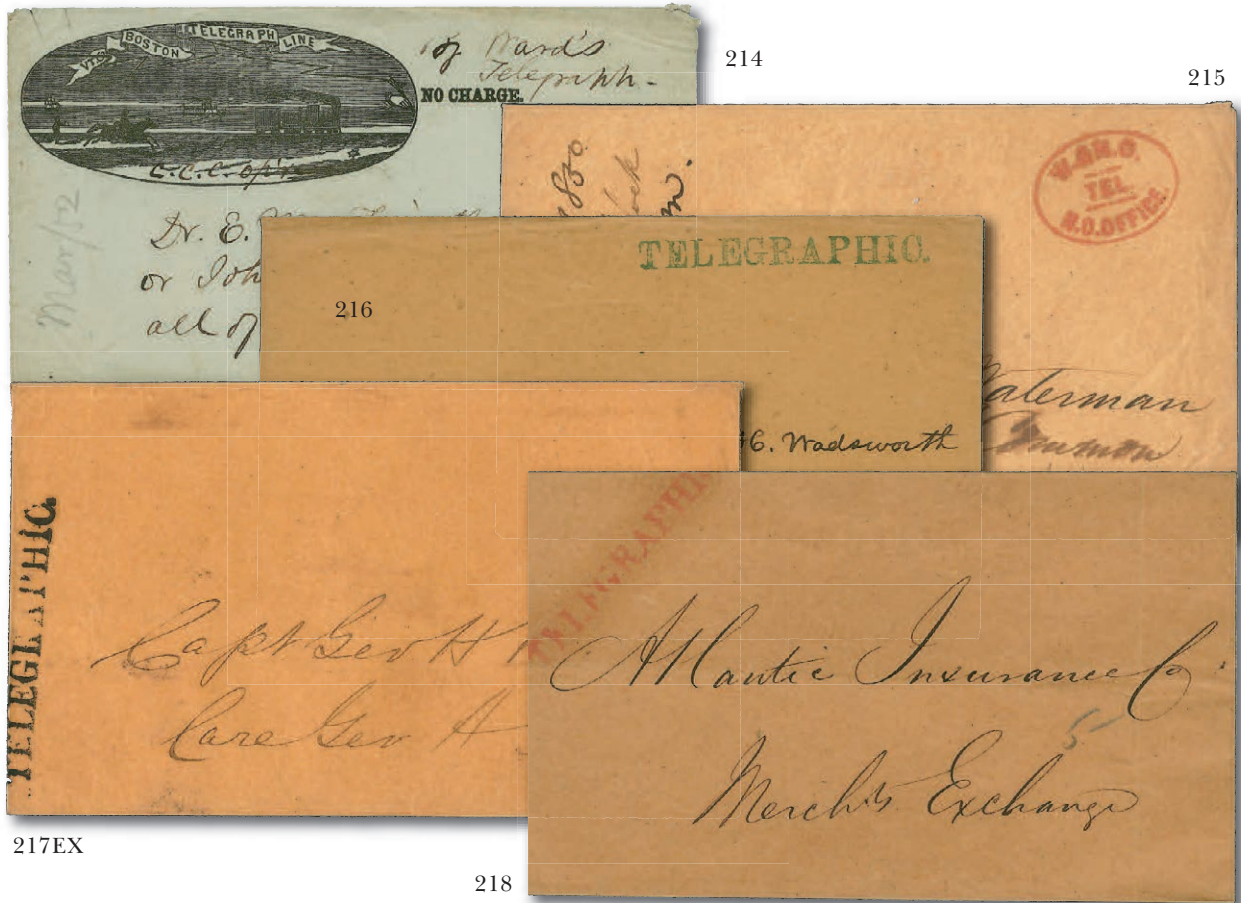 VT. & BOSTON TELEGRAPH LINE
of Ward's
Telegraph.
NO CHARGE.
C.C.C. op'r
Mar/52
Dr. E.
or Joh
all of
214
215
W.&N.O.
TEL.
N.O.OFFICE.
Waterman
Common
216
TELEGRAPHIC.
Wadsworth
TELEGRAPHIC.
Capt Geo H
Care Geo H
217EX
TELEGRAPHI
Atlantic Insurance Co.
5
Merchts Exchange
218